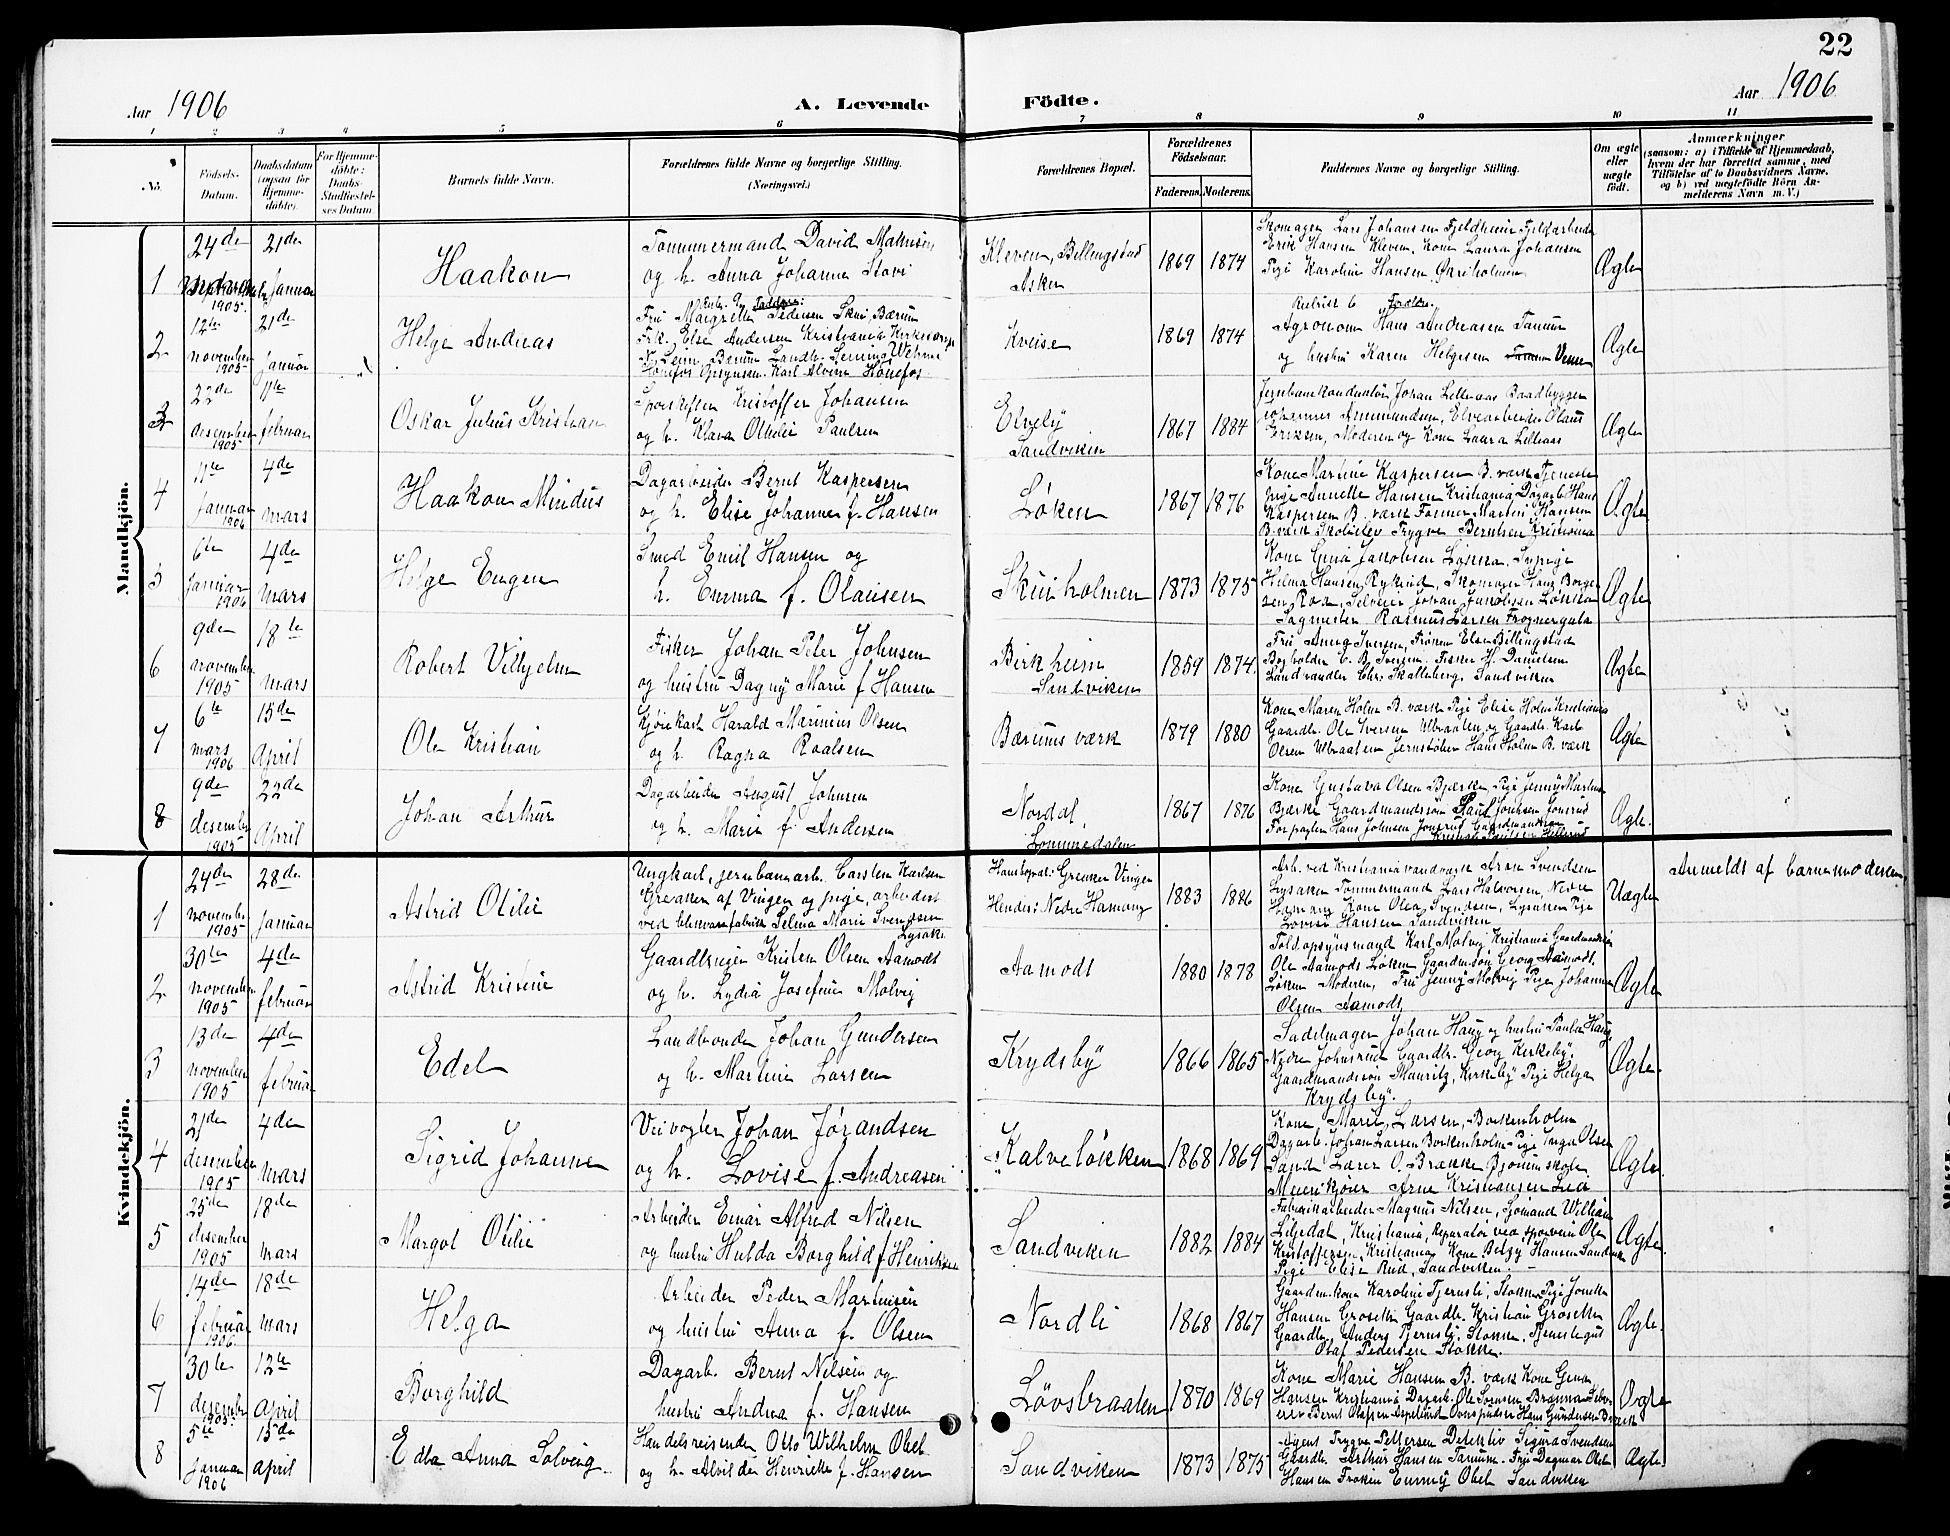 22
Aar 1906
A. Levende Födte.
Aar 1906
1 2 3 4 5 6 7 8 9 10 11
No.
Födsels-Datum.
Daabsdatum (ogsaa for Hjemme-döbte).
For Hjemme-döbte: Daabs-Stadfæstel-ses Datum.
Barnets fulde Navn.
Forældrenes fulde Navne og borgerlige Stilling. (Næringsvei.)
Forældrenes Bopæl.
Forældrenes Födselsaar.
Faderens. Moderens.
Faddernes Navne og borgerlige Stilling.
Om ægte eller uægte födt.
Anmærkninger
(saasom: a) i Tilfælde af Hjemmedaab, hvem der har forrettet samme, med Tilföielse af to Daabsvidners Navne, og b) ved uægtefödte Börn An-melderens Navn m. V.)
Mandkjön.
1 24de 1905. 21de Januar
Haakon
Tømmermand David
og h. Anna Johanna Stovi
Kleven, Billingstad
Asker
1869 1874
Skomager Lars Johansen Fjeldheim
Erik Hansen Kleven. Kone Laura Johansen
Pige Karoline Hansen
Ægte
2 12te november 1905 21de Januar
Helge Andreas
Faddere:
Fru Pedersen Skui, Bærum
Frk. Else Andersen Kristiania
Karl Hönefos
Kveise
1869 1874
Agronom Hans Andreasen Tanum
og hustru Karen Helgesen
Ægte
3 22de desember 1905 11te februar
Oskar Julius Kristian
Kristoffer Johansen
og h. Klara Othelie Paulsen
Elvely
Sandviken
1867 1884
Jernbanekonduktör Johan Lilleaas Baadbygger
Johannes Ammundsen, Elvearbeider Olaus
Eriksen, Moderen og Kone Laura Lilleaas
Ægte
4 11te Januar 1906 4de mars
Haakon Mindius
Dagarbeider Bernt Kaspersen
og h. Elise Johanne f. Hansen
Løken
1867 1876
Kone Martine Kaspersen B. værk Tjeneste
pige Annette Hansen Kristiania Dagarb. Hans
Kaspersen B. værk Martin Hansen
B. værk Skoleelev Trygve Berntsen Kristiania
Ægte
5 6te Januar 1906 4de mars
Helge Eugen
Smed Emil Hansen og
h. Emma f. Olausen
Skuiholmen
1873 1875
Kone Gina Jakobsen Løkka, Sypige
Hilma Hansen Rykind, Skomager Hans Borger
sen Roa, Selveier Johan Jakobsen Løkka
Sagmester Rasmus Larsen Frognergata
Ægte
6 9de november 1905 18de mars
Robert Vilhjelm
Fisker Johan Peter Johnsen
og hustru Dagny Marie f Hansen
Birkheim
Sandviken
1859 1874
Fru Anna Iversen, Frøken Else Billingstad
C. B. Iversen, Fisker H. Danielsen
Landhandler Chr. Skalleberg, Sandviken
Ægte
7 6te mars 1906 15de April
Ole Kristian
Kjørekarl Harald Marinius Olsen
og h. Ragna Roalsen
Bærums værk
1879 1880
Kone Maren Holm B. værk Pige Elise Holm Kristiania
Gaardbr. Ole Iversen Ulbraaten og Gaardbr. Karl
Olsen Ulbraaten Jernstøber Hans Holm B. værk
Ægte
8 9de desember 1905 22de April
Johan Arthur
Dagarbeider August Johnsen
og h. Marie f. Andersen
Nordal,
Lommedalen
1867 1876
Kone Gustava Olsen Bjærke, Pige Jenny Martin
Bjærke Gaardmandssøn Paul Johnsen Jonsrud
Forpagter Hans Johnsen Jonsrud Gaardmandssøn
Ægte.
Kvindekjön.
1 24de november 1905 28de Januar
Astrid Otilie
Ungkarl, jernbanearb. Carsten Karlsen
Grevaker af Vingen og pige, arbeiderske
ved Selma Marie Svendsen
Lysaker
Hans bopæl: Grevaker Vinger
Hendes: Nedre Hamang
1883 1886
Arb. ved Kristiania vandværk Aron Svendsen
Lysaker Tømmermand Lars Halvorsen, Nedre
Hamang Kone Olea Svendsen, Lysaker, Pige
Lovise Hansen Sandviken
Uægte
Anmeldt af barnemoderen
2 30te november 1905 4de februar
Astrid Kristine
Gaardbruger Kristen Olsen Aamodt
og h. Lydia Josefine Molvig
Aamodt
1880 1878
Toldopsynsmand Karl Molvig Kristiania Gaardmandssøn
Ole Aamodt Løken Gaardmssøn Georg Aamodt,
Løken Moderen, Fru Jenny Molvig Pige Johanna
Olsen Aamodt,
Ægte
3 13de november 1905 4de februar
Edel
Landhandler Johan Gundersen
og h. Martine Larsen
Krydsby
1866 1865
Sadelmager Johan Haug og hustru Paula Haug,
Nedre Johnsrud Gaardbr. Georg Kirkeby.
Gaardmandssøn Mauritz, Kirkeby Pige Helga
Krydsby.
Ægte.
4 21de desember 1905 4de mars
Sigrid Johanne
Veivogter Johan Jørandsen
og h. Lovise f. Andreasen
Kalveløkken
1868 1869
Kone Marie Larsen, Borkenholm
Dagarb. Johan Larsen Borkenholm Pige Inga Olsen
Sand Lærer O. Brække Bjørum skole
Meierikjører Arne Kristiansen Lia
Ægte
5 25de desember 1905 18de mars
Margot Otilie
Arbeider Einar Alfred Nilsen
og hustru Hulda Borghild f Henriksen
Sandviken
1882 1884
Fabrikarbeider Magnus Nilsen, Sjømand William
Liljedal, Kristiania, Reparatør ved sporvein Ole
Kristoffersen, Kristiania, Kone Betzy Hansen Sandviken
Pige Elise Rud, Sandviken.
Ægte.
6 14de februar 1906 18de mars
Helga
Arbeider Peder Martinsen
og hustru Anna f. Olsen
Nordli
1868 1867
Gaardm. kone Karoline Tjernsli, Stokker Pige
Hansen Grosetken Gaardbr. Kristian Grosetken
Gaardbr. Anders Tjernsli, Stokker, Tjenestegut
Olaf Pedersen Stokke.
Ægte.
7 30te desember 1905. 12te April
Borghild
Dagarb. Bernt Nilsen og
hustru Andrea f. Hansen
Løvsbraaten
1870 1869
Kone Marie Hansen B. værk Kone Gina
Hansen Kristiania Dagarb. Ole Sørensen
Bernt Olafsen Aspelund Ovnspudser Hans Gundersen B. værk
Ægte
8 5te Januar 1906 15de April
Edla Anna Solveig
Handelsreisende Otto Wilhelm Obel
og h. Alvilde Henriette f. Hansen
Sandviken
1873 1875
Agent Trygve Pettersen Detektiv Sigurd Svendsen
Gaardbr. Arthur Hansen Tanum. Fru Dagmar Obel
Hansen Frøken Emmy Obel Sandviken
Ægte